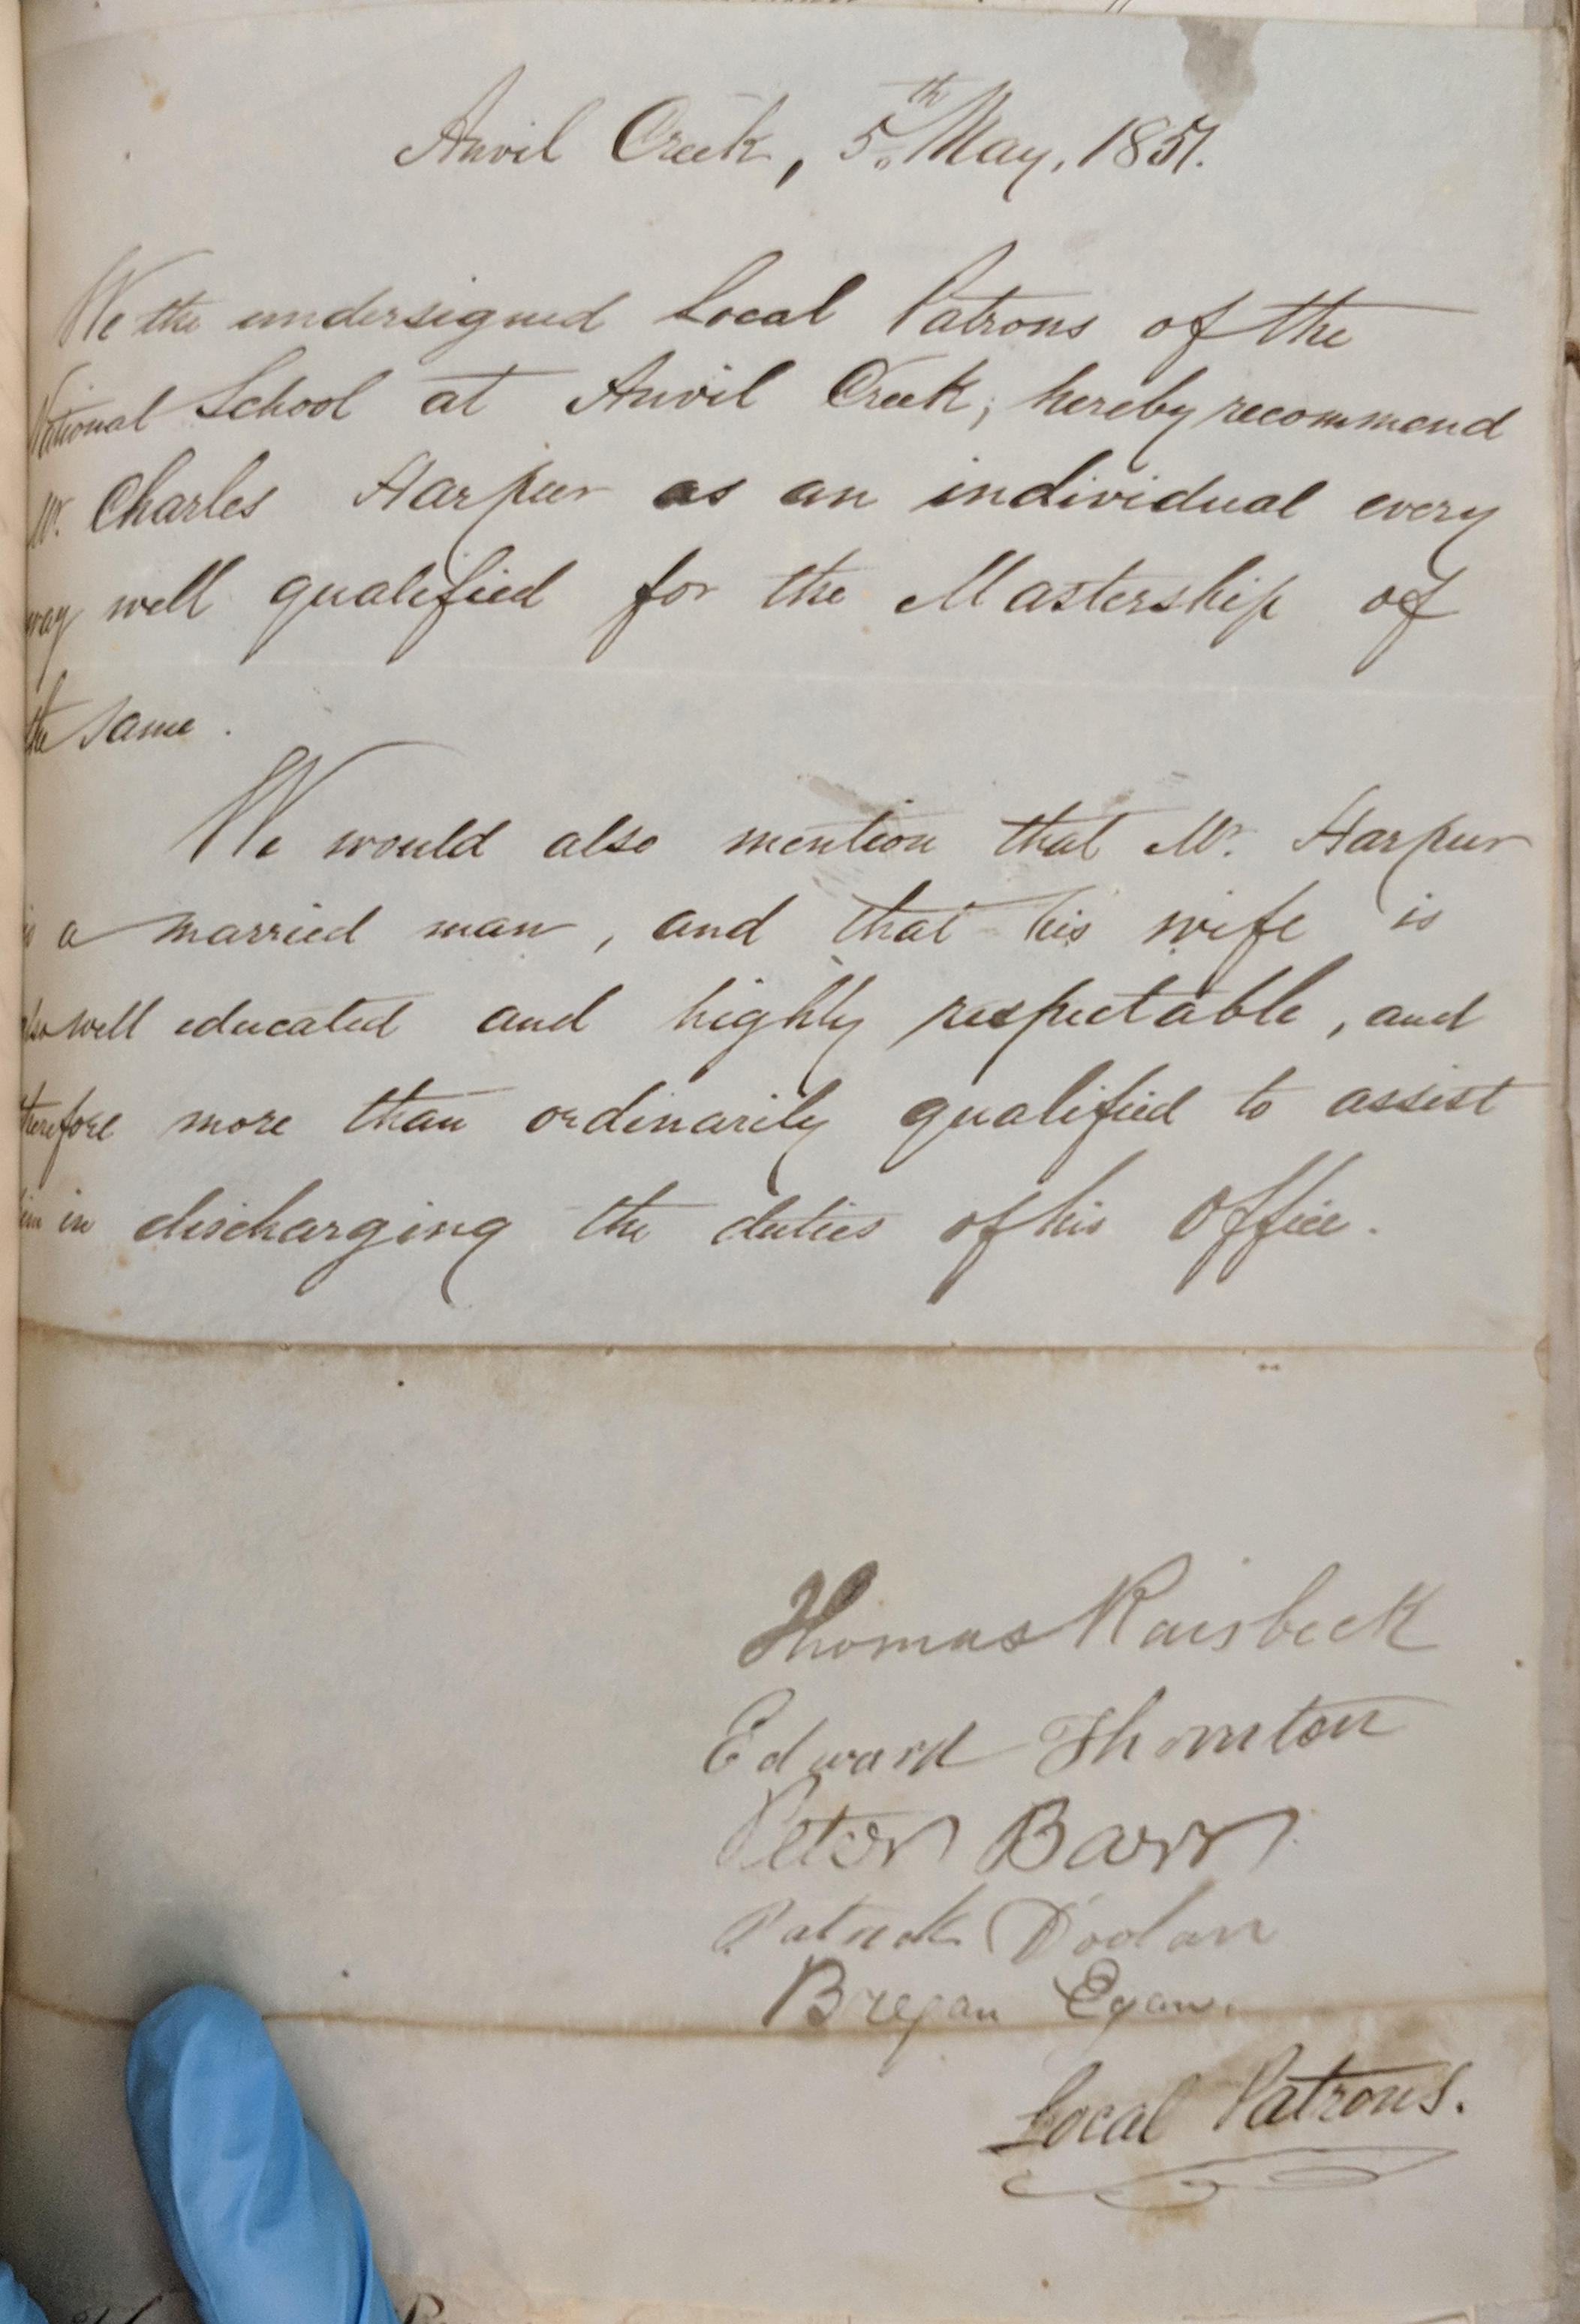 Anvil Creek, 5th. May, 1851.
We the undersigned Local Patrons of the
National School at Anvil Creek, hereby recommend
Mr. Charles Harpur as an individual every
way well qualified for the Mastership of
the same.
We would also mention that Mr. Harpur
is a married man, and that his wife is
also well educated and highly respectable, and
therefore more than ordinarily qualified to assist
him in discharging the duties of his Office.
Thomas Raisbeck
Edward Thornton
Peter Barr
Patrick Doolan
Egan.
Local Patrons.